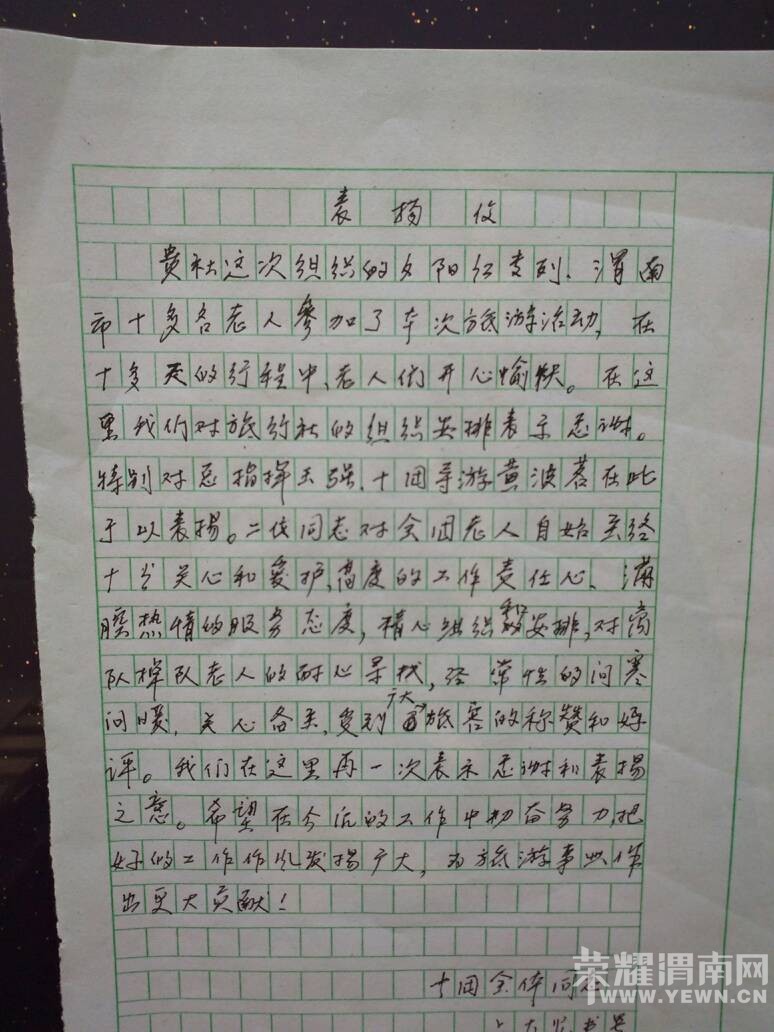 表扬信
贵社这次组织的夕阳红专列、渭南
市十多名老人参加了本次旅游活动，在
十多天的行程中，老人们开心愉快。在这
里我们对旅行社的组织安排表示感谢。
特别对总指挥王强、十团导游黄波蓉在此
于以表扬。二位同志对全团老人自始至终
十分关心和爱护，高度的工作责任心、满
腔热情的服务态度，精心组织和安排，对离
队掉队老人的耐心寻找，经常性的问寒
问暖，关心备至，受到广大旅客的称赞和好
评。我们在这里再一次表示感谢和表扬
之意。希望在今后的工作中加奋努力，把
好的工作作风发扬广大，为旅游事业作
出更大贡献！
十团全体同志
荣耀渭南网
WWW.YEWN.CN